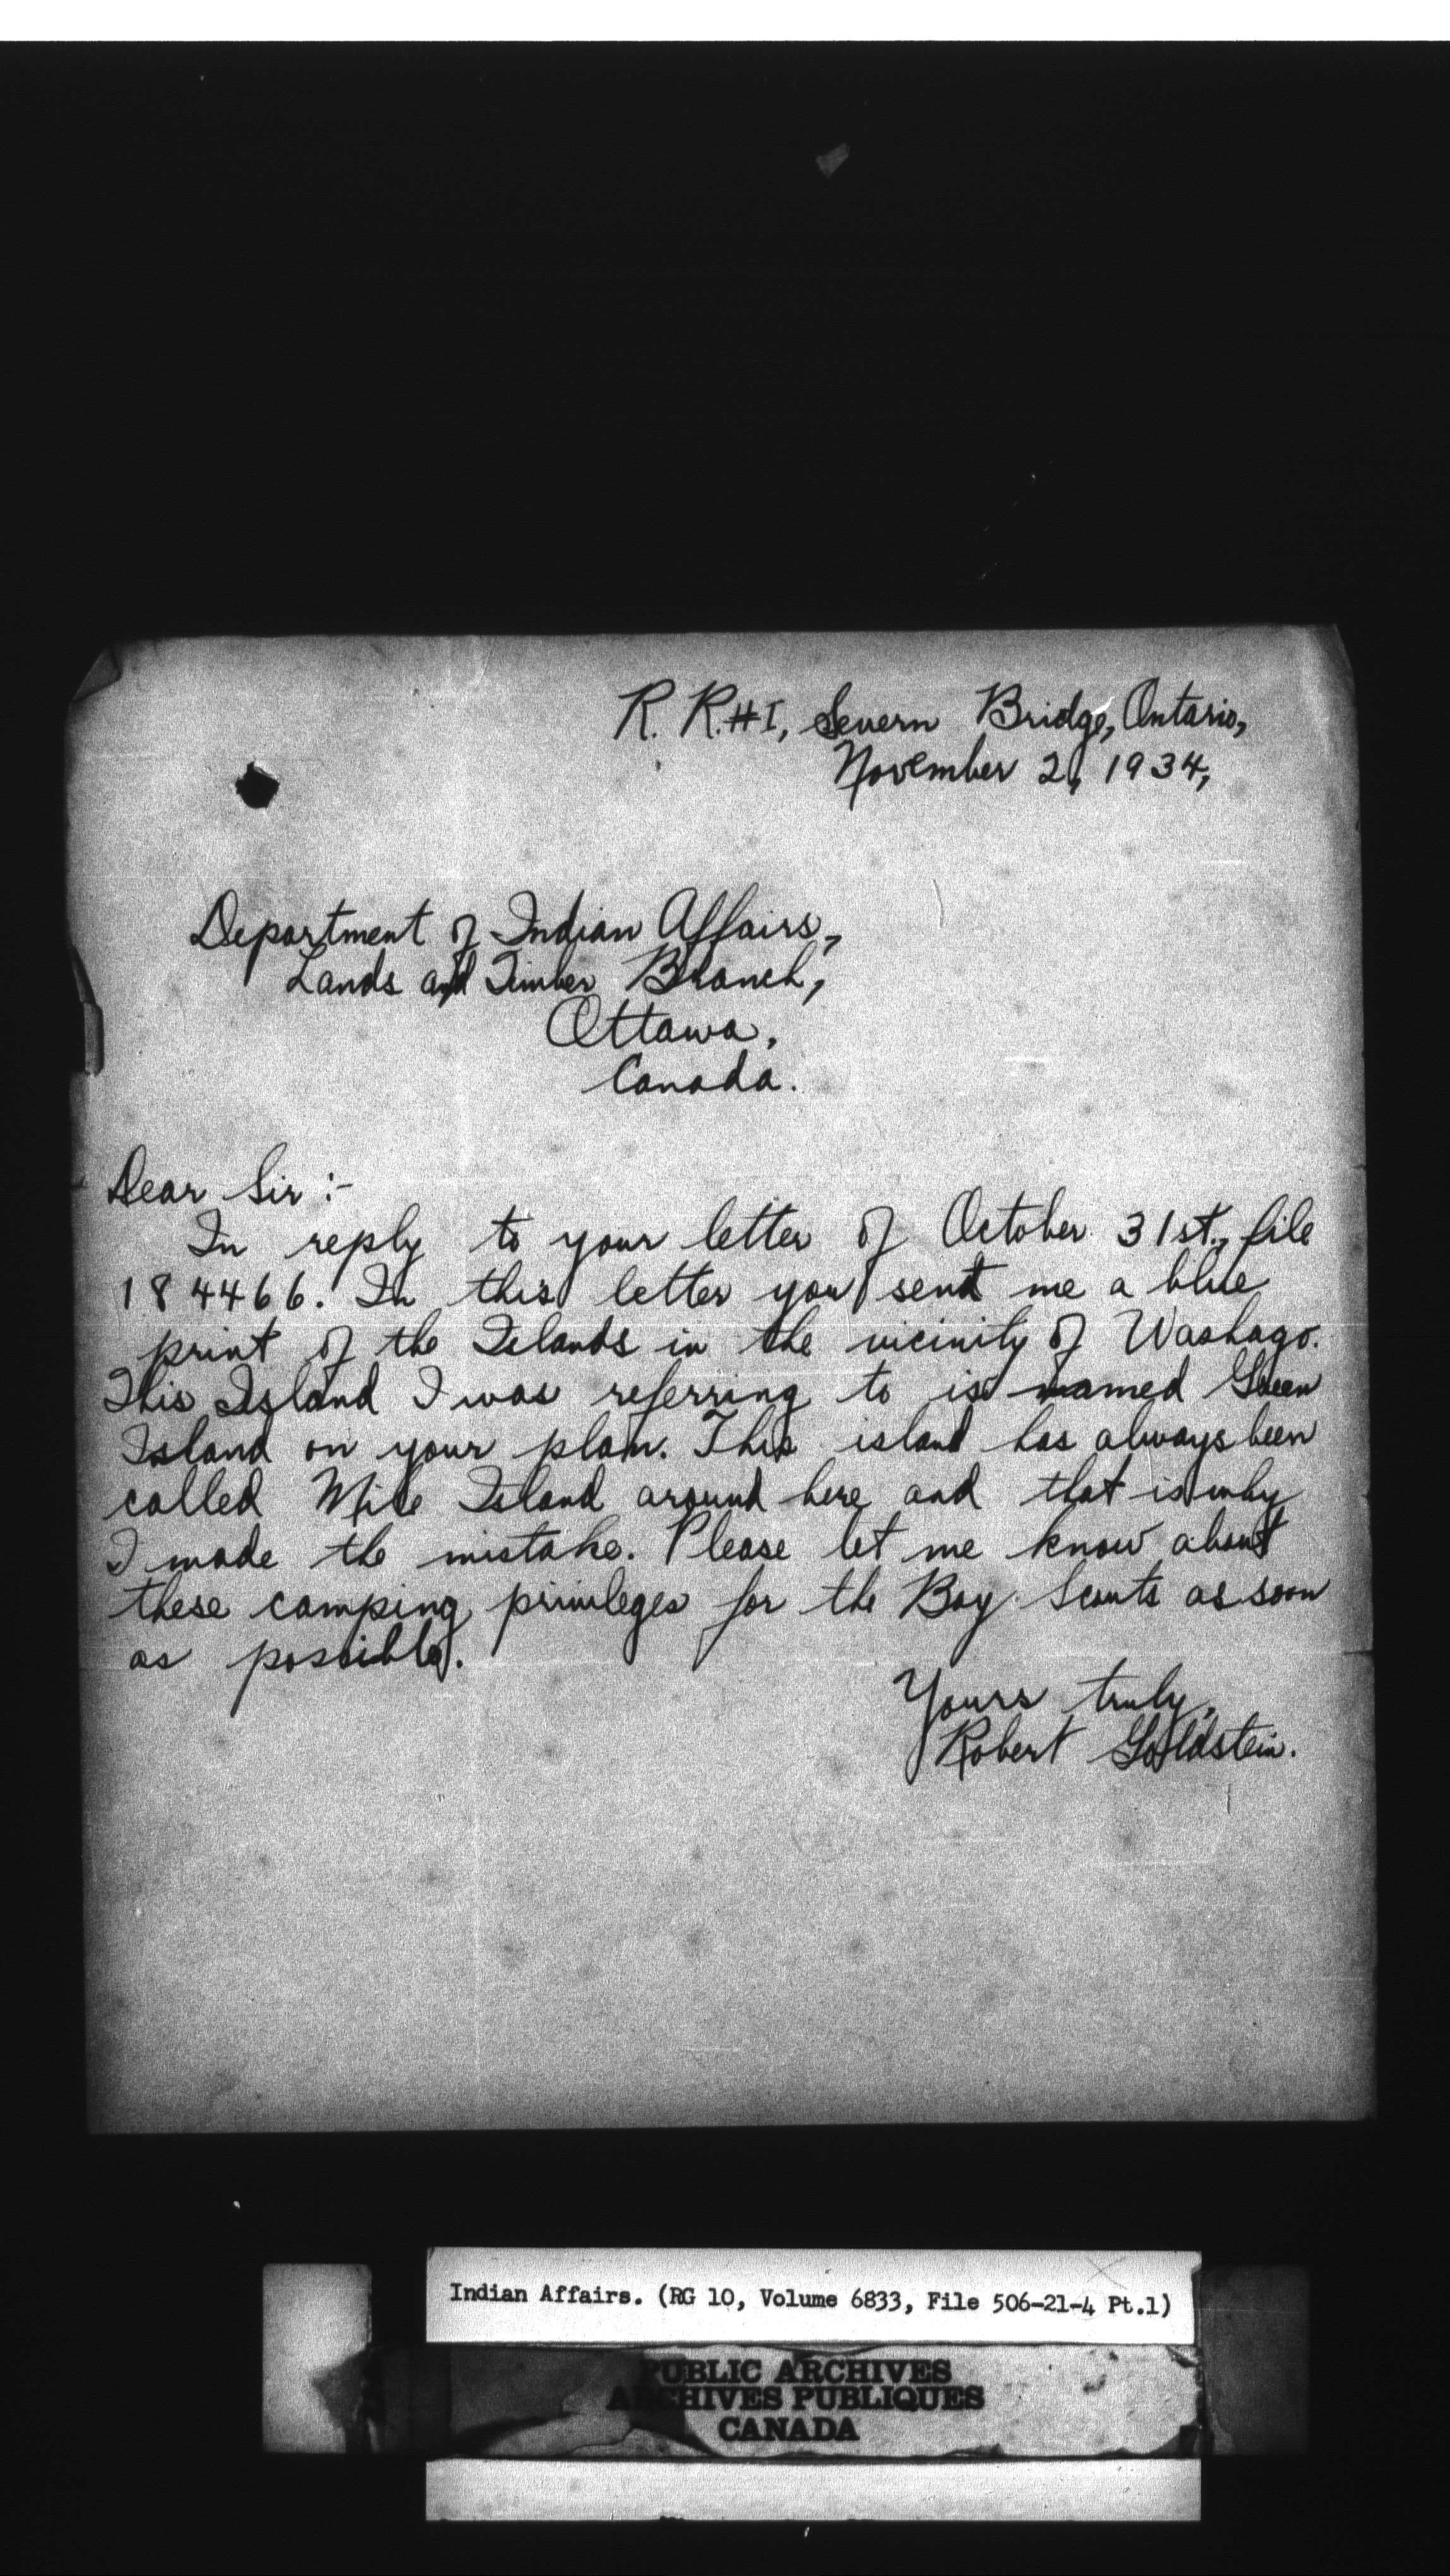 R. R. #1, Severn Bridge, Ontario,
November 2, 1934,
Department of Indian Affairs,
Lands and Timber Branch,
Ottawa,
Canada.
Dear Sir :-
In reply to your letter of October 31st., file
184466. In this letter you sent me a blue
print of the Islands in the vicinity of Washago.
This Island I was referring to is named Green
Island on your plan. This island has always been
called Mile Island around here and that is why
I made the mistake. Please let me know about
these camping privileges for the Boy Scouts as soon
as possible.
Yours truly,
Robert Goldstein.
Indian Affairs. (RG 10, Volume 6833, File 506-21-4 Pt.1)
PUBLIC ARCHIVES
ARCHIVES PUBLIQUES
CANADA